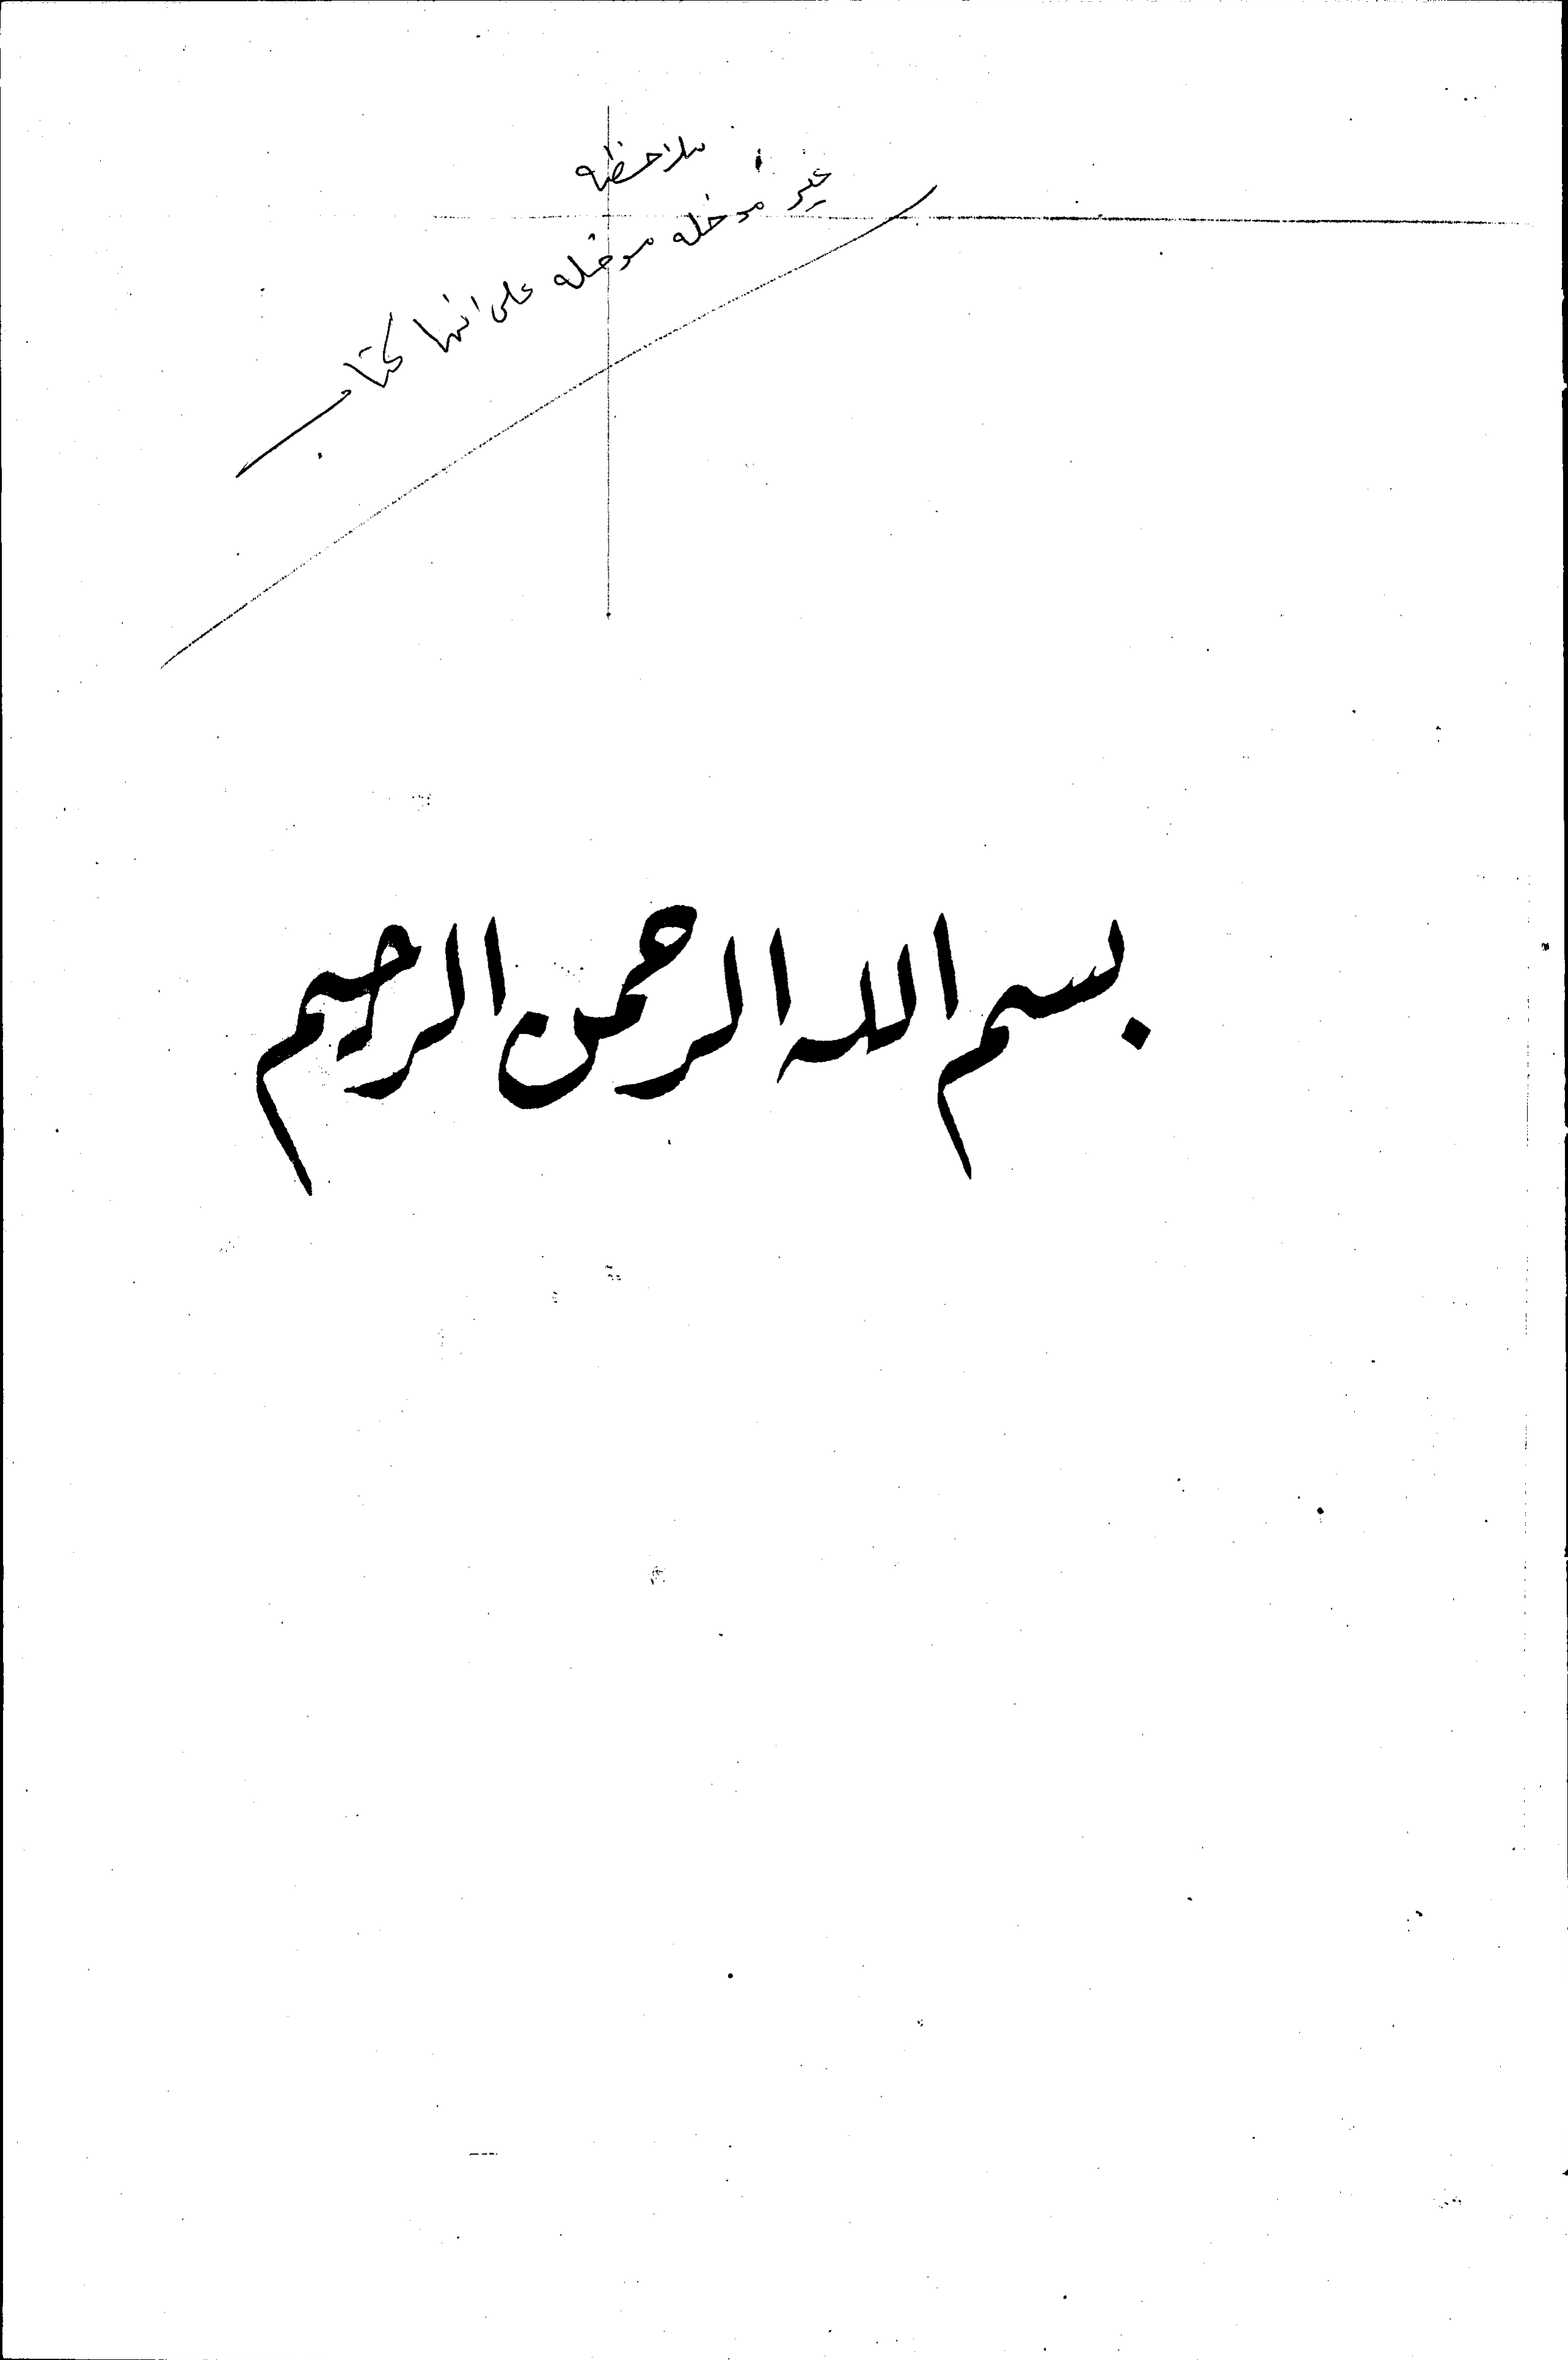 ملاحظه
غير مدخله مدخله على انها كتاب
بسم الله الرحمن الرحيم